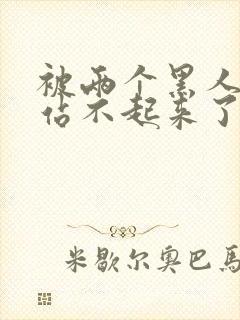 被两个黑人
站不起来了
米歇尔奥巴馬